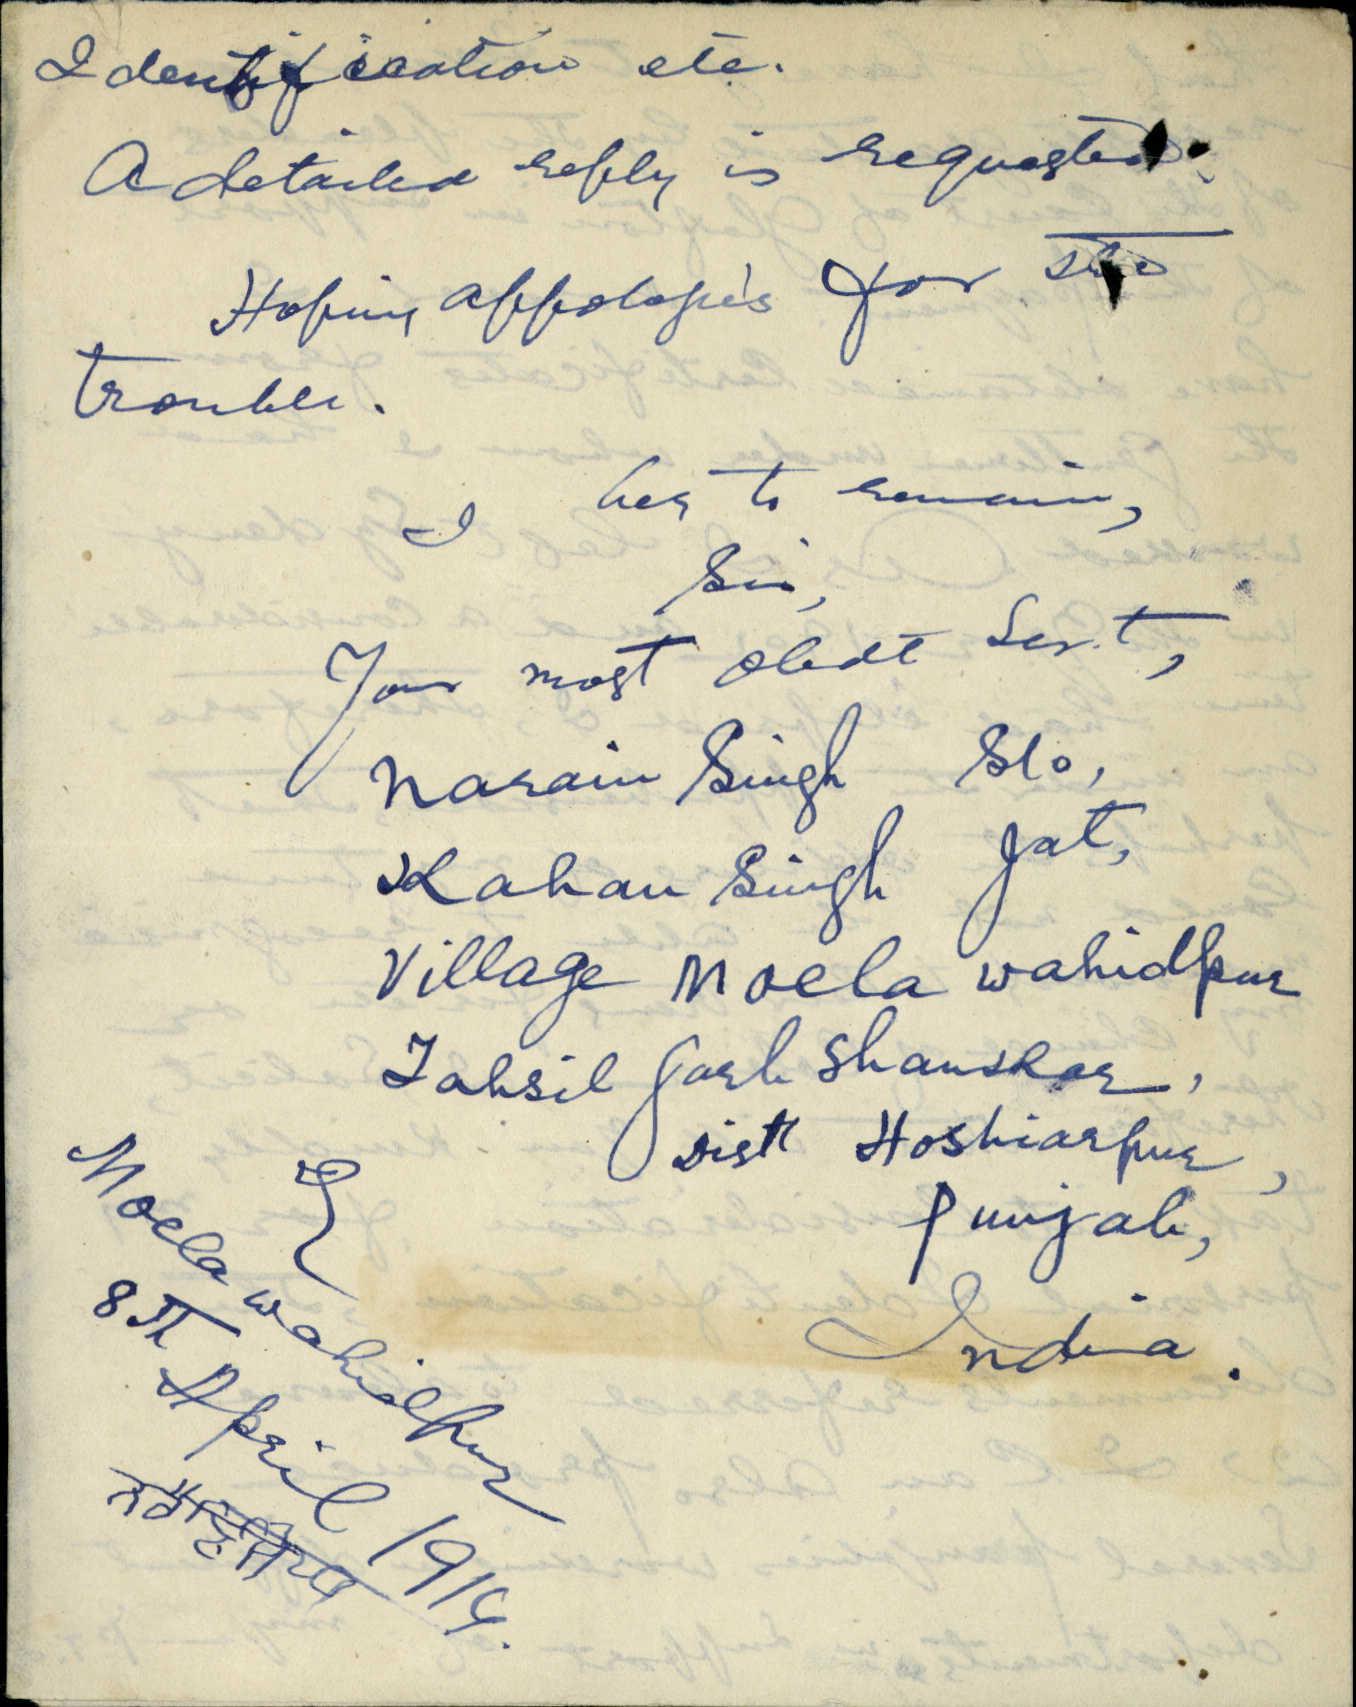 Identification etc.
A detailed reply is requested.
Hoping appologies for the
trouble.
I beg to remain,
Sir,
Your most obedt Servt,
Narain Singh S/o,
Kahan Singh Jat,
Village Moela wahidpur
Tahsil Garh Shanskar,
Distt Hoshiarpur,
Punjab,
India.
Moela wahidpur
8th April 1914.